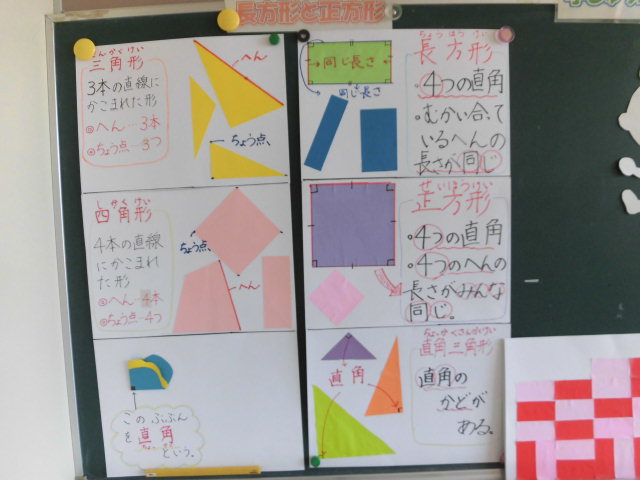 長方形と正方形
さんかくけい
三角形
3本の直線に
かこまれた形
◎へん…3本
◎ちょう点…3つ
へん
ちょう点
しかくけい
四角形
4本の直線
にかこまれ
た形
◎へん…4本
◎ちょう点…4つ
ちょう点
へん
このぶぶん
を直角
という。
ちょうほうけい
長方形
・4つの直角
・むかい合って
いるへんの
長さが同じ
同じ長さ
同じ長さ
せいほうけい
正方形
・4つの直角
・4つのへんの
長さがみんな
同じ。
ちょっかくさんかくけい
直角三角形
直角の
かどが
ある。
直角